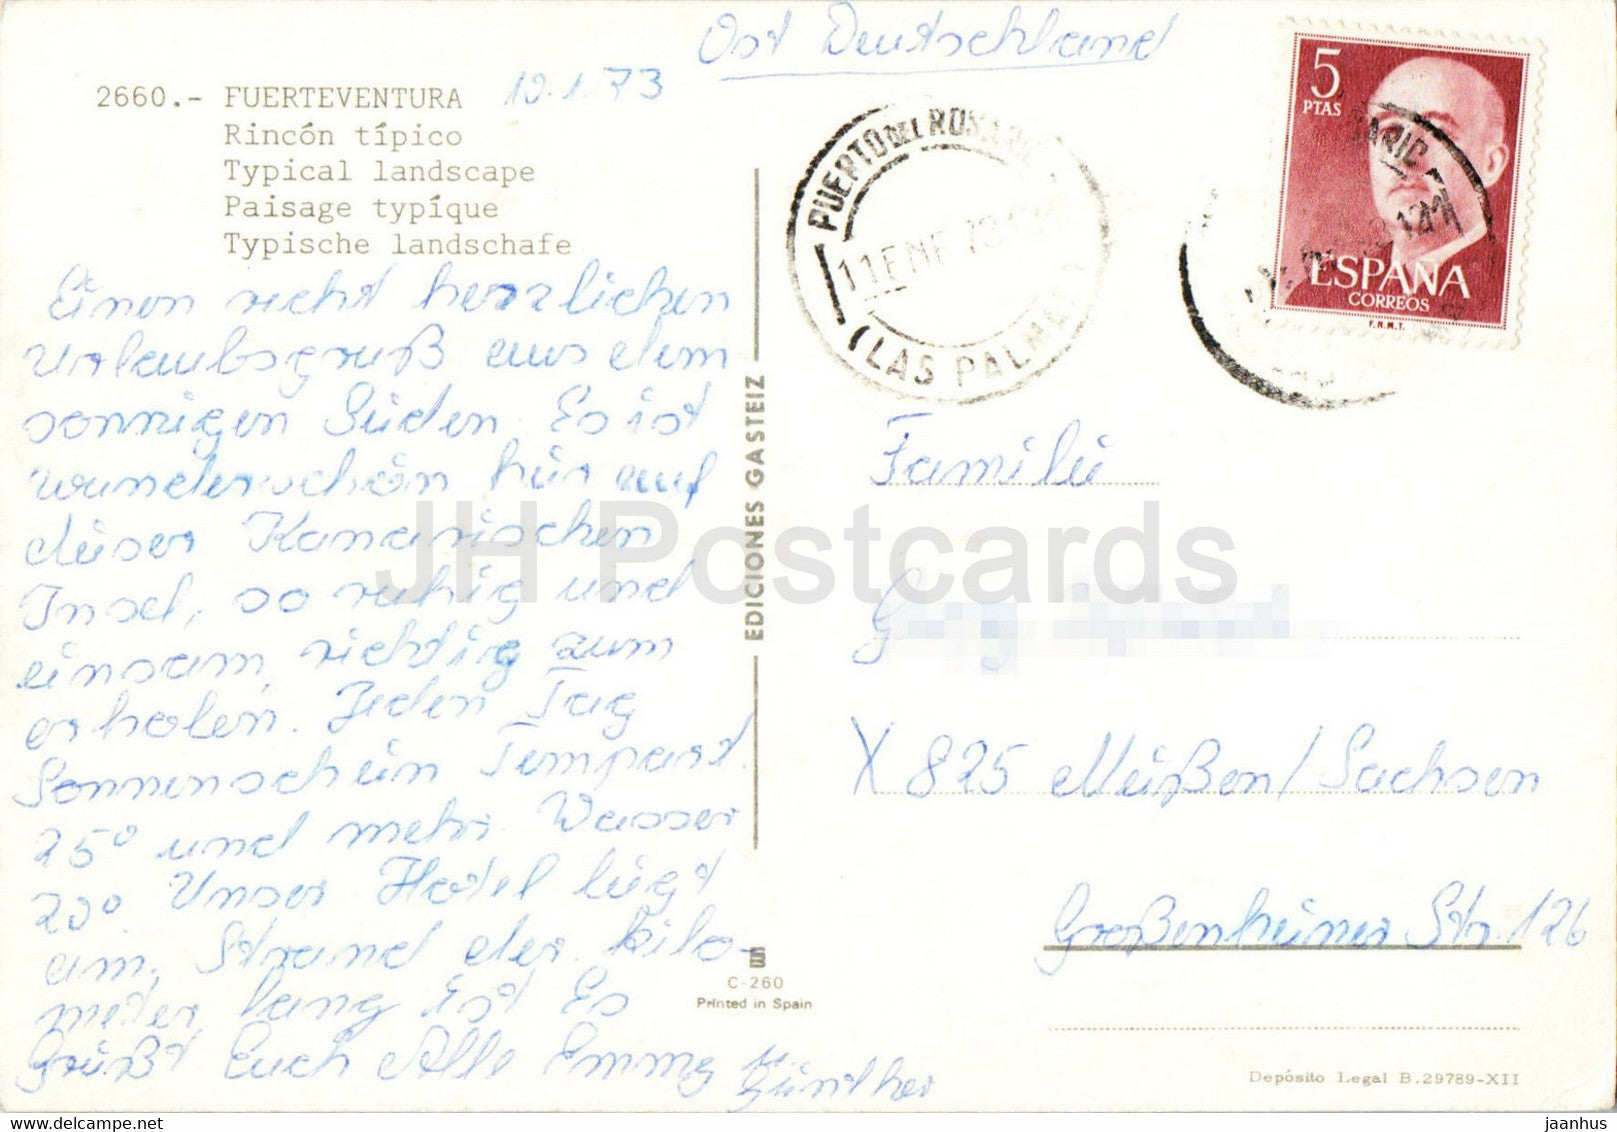 Ost Deutschland
2660.- FUERTEVENTURA 10.1.73
Rincón típico
Typical landscape
Paisage typíque
Typische landschafe
Einen recht herzlichen
Urlaubsgruß aus dem
sonnigen Süden. Es ist
wunderschön hier auf
dieser Kanarischen
Insel, so ruhig und
einsam, richtig zum
erholen. Jeden Tag
Sonnenschein Temperat.
25° und mehr. Wasser
20°. Unser Hotel liegt
am. Strand der kilo-
meter lang ist Es
Grüßt Euch Alle Emmy u.
Günther
EDICIONES GASTEIZ
C-260
Printed in Spain
PUERTO DEL ROSARIO
11 ENE 73
(LAS PALMAS)
5
PTAS
ESPAÑA
CORREOS
F.N.M.T.
Familie
X 825 Meißen/Sachsen
Großenheiner Str. 126
Depósito Legal B.29789-XII
JH Postcards
delcampe.net
jaanhus